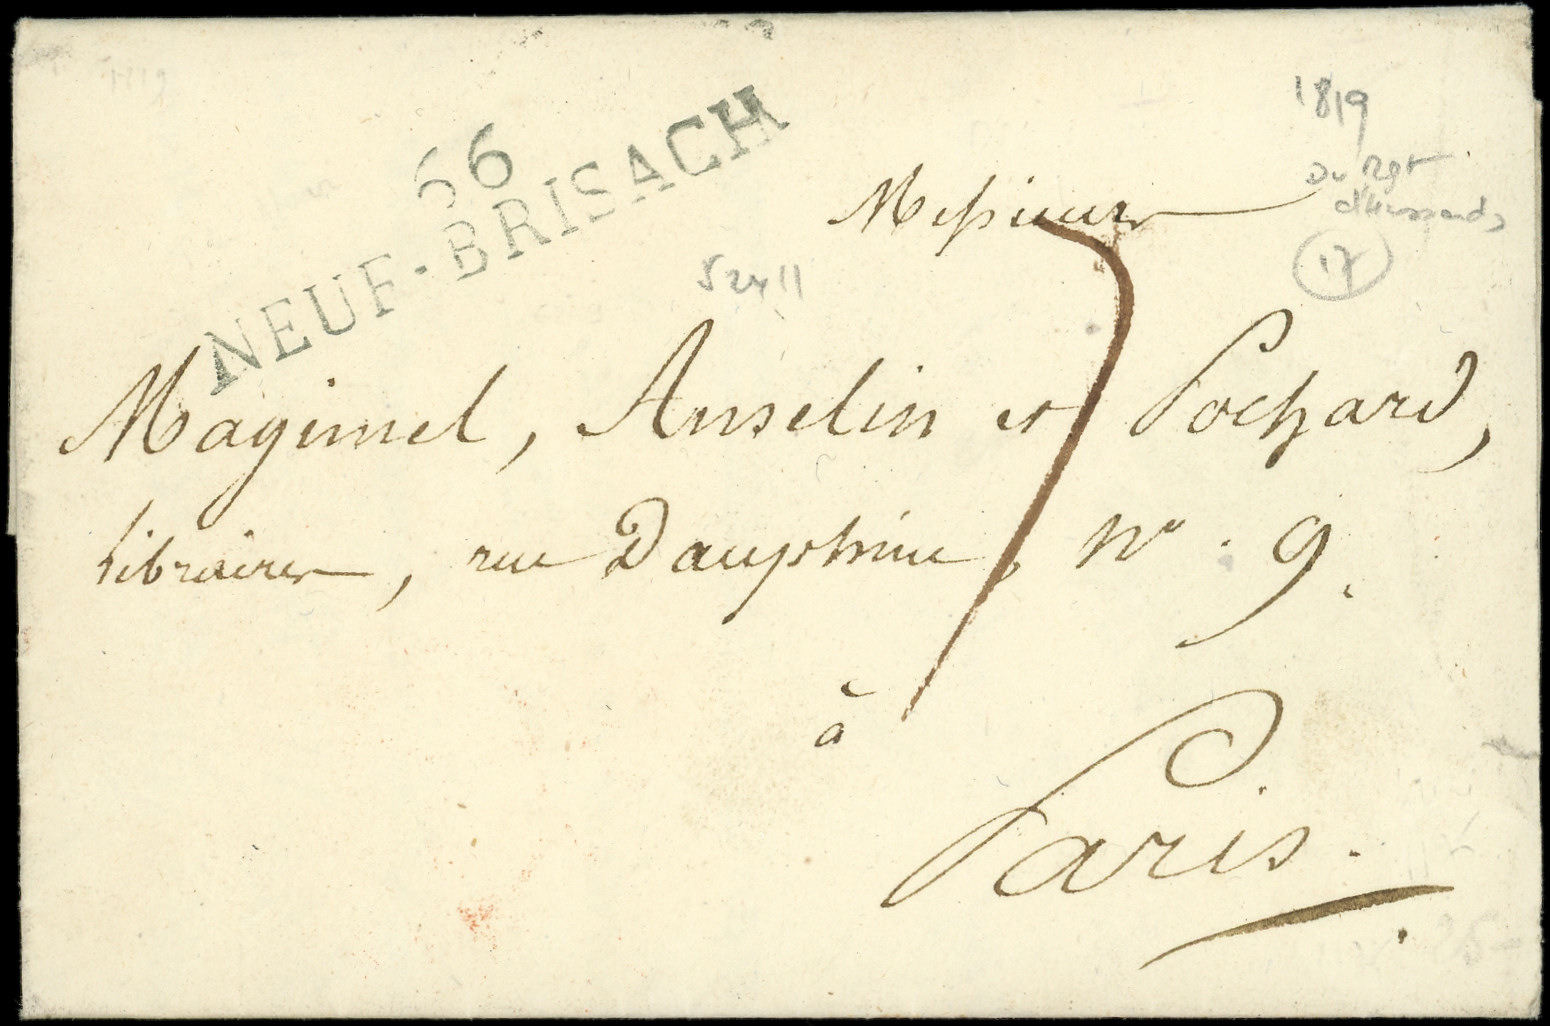 1819
66
NEUF-BRISACH
Messieurs
1819
Du Rgt
d'Hussards
17
52411
7
Magimel, Anselin et Pochard,
libraires, rue Dauphine, No. 9.
à
Paris.